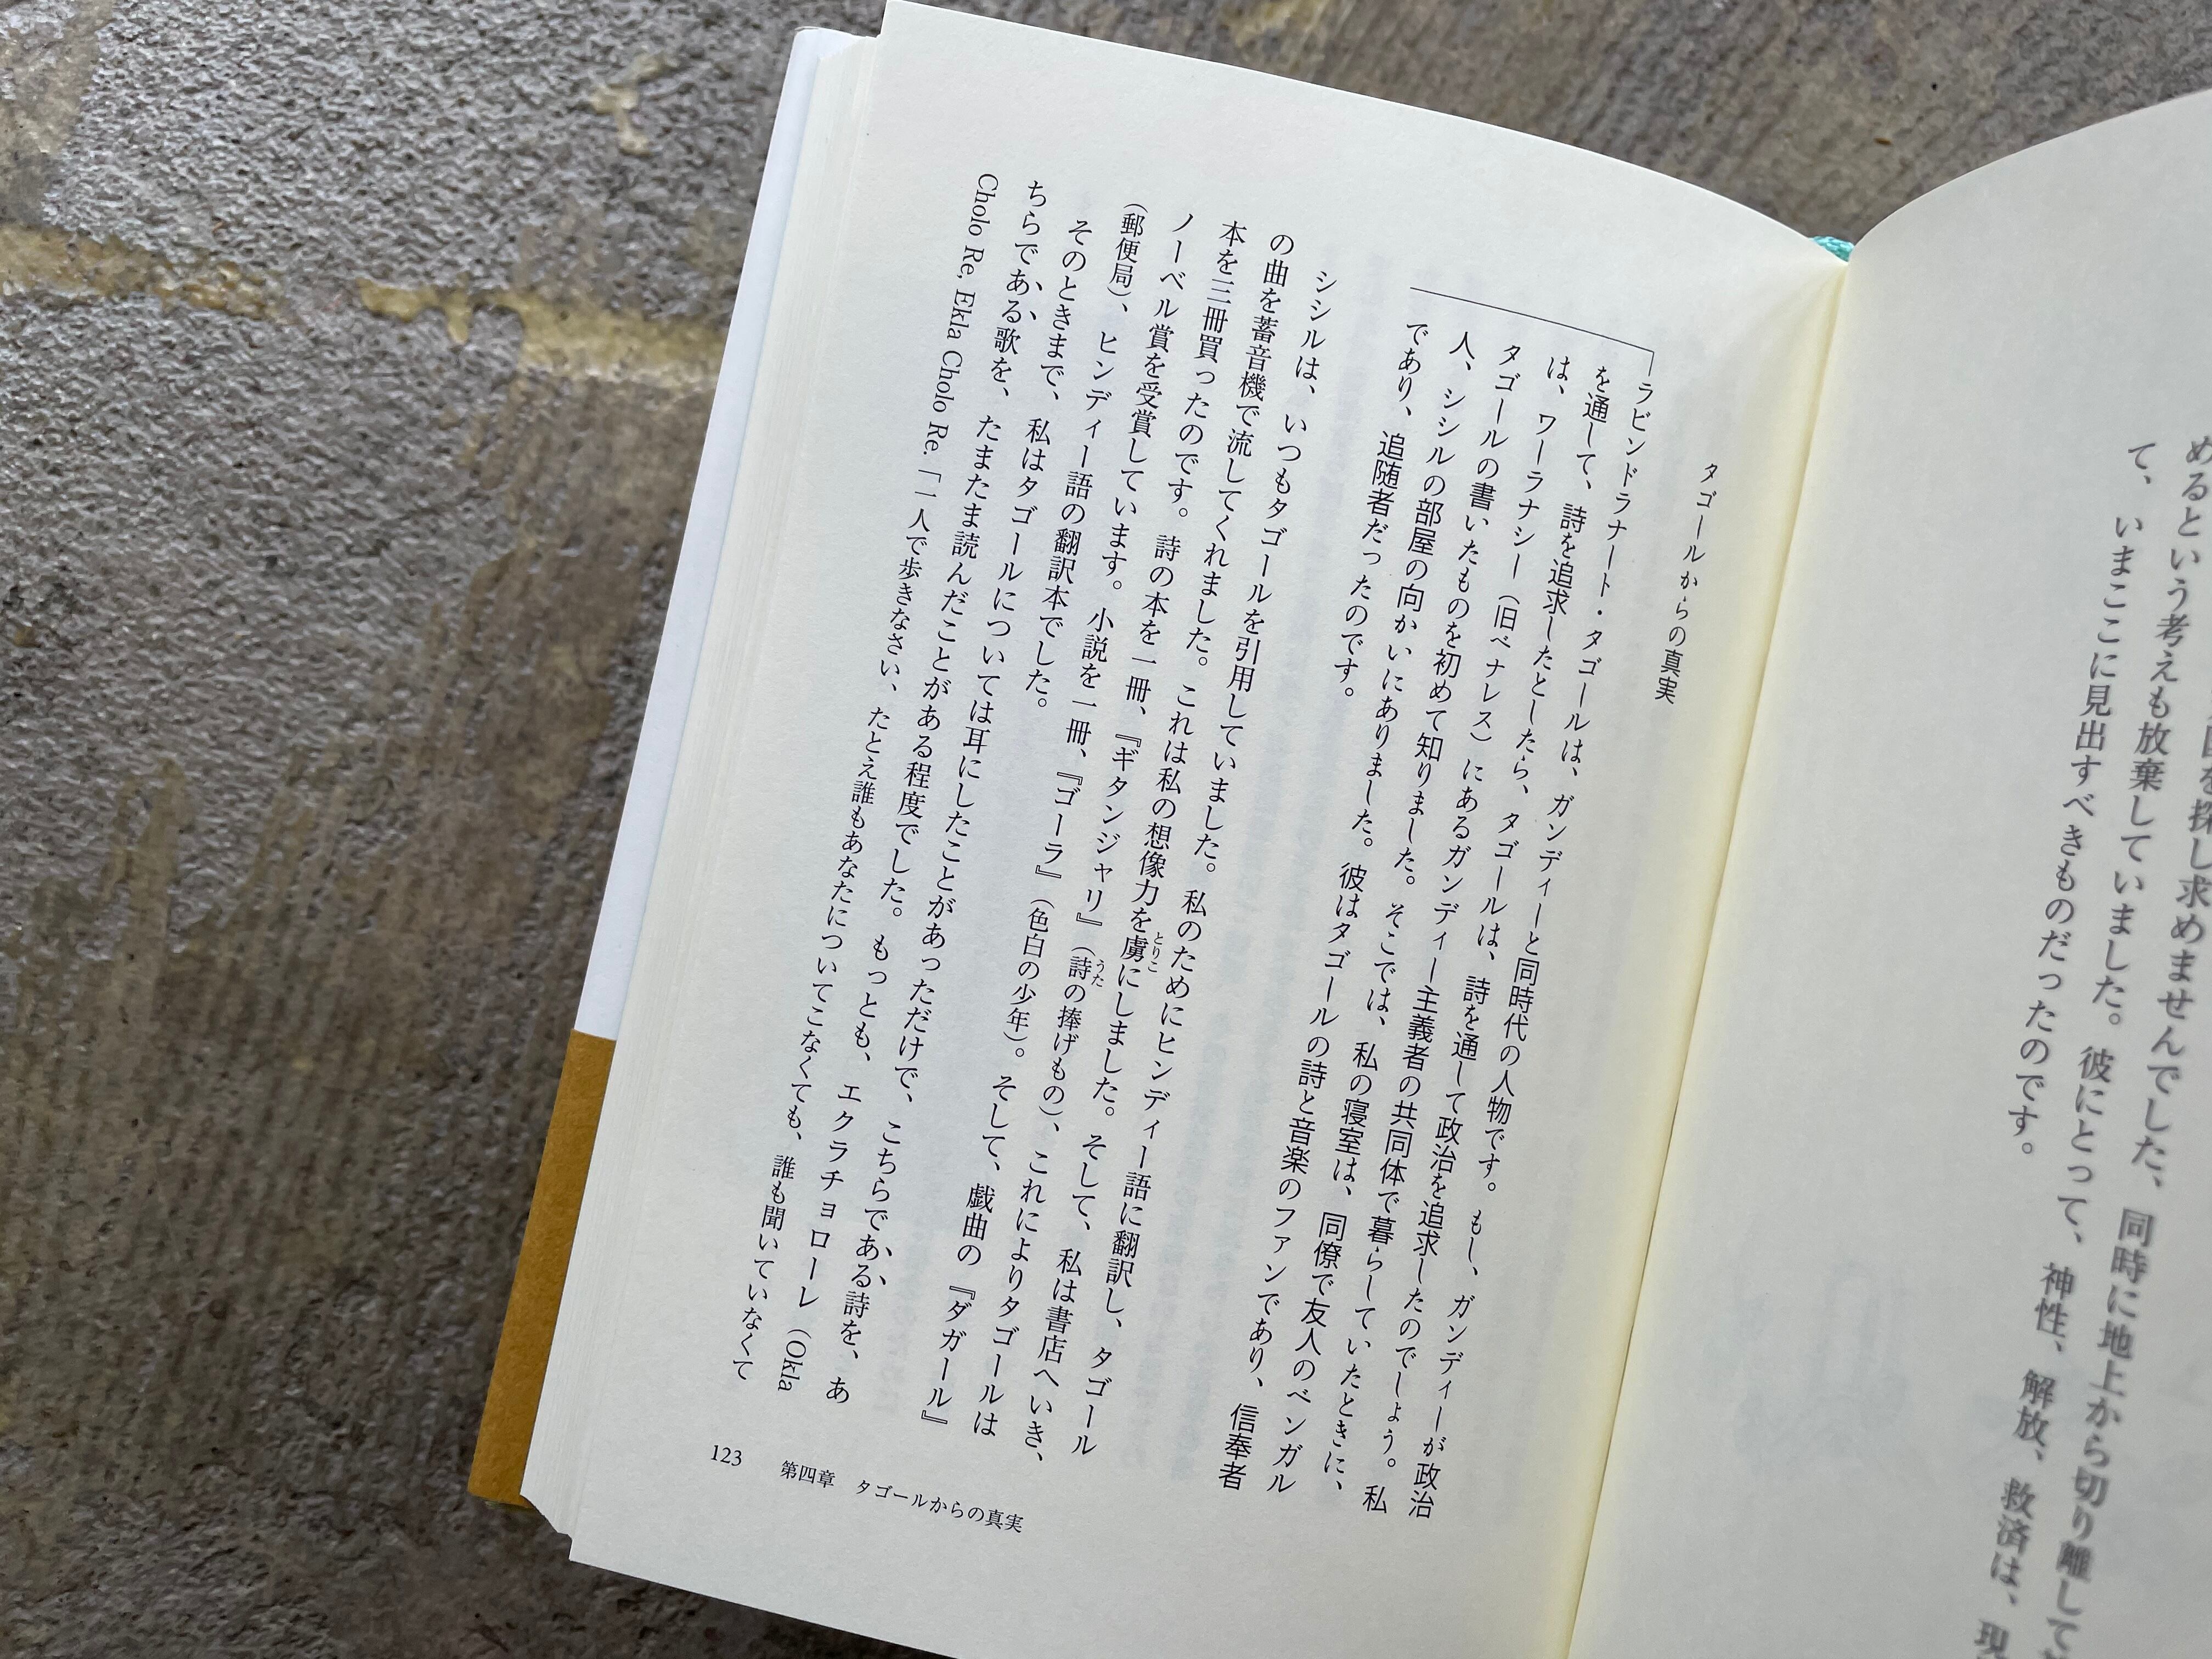 を探し求めませんでした、同時に地上から切り離して
めるという考えも放棄していました。彼にとって、神性、解放、救済は、現
て、いまここに見出すべきものだったのです。
タゴールからの真実
ラビンドラナート・タゴールは、ガンディーと同時代の人物です。もし、ガンディーが政治
を通して、詩を追求したとしたら、タゴールは、詩を通して政治を追求したのでしょう。私
は、ワーラナシー（旧ベナレス）にあるガンディー主義者の共同体で暮らしていたときに、
タゴールの書いたものを初めて知りました。そこでは、私の寝室は、同僚で友人のベンガル
人、シシルの部屋の向かいにありました。彼はタゴールの詩と音楽のファンであり、信奉者
であり、追随者だったのです。
シシルは、いつもタゴールを引用していました。私のためにヒンディー語に翻訳し、タゴール
の曲を蓄音機で流してくれました。これは私の想像力を虜にしました。そして、私は書店へいき、
本を三冊買ったのです。詩の本を一冊、『ギタンジャリ』（詩の捧げもの）、これによりタゴールは
ノーベル賞を受賞しています。小説を一冊、『ゴーラ』（色白の少年）。そして、戯曲の『ダガール』
（郵便局）、ヒンディー語の翻訳本でした。
そのときまで、私はタゴールについては耳にしたことがあっただけで、こちらである詩を、あ
ちらである歌を、たまたま読んだことがある程度でした。もっとも、エクラチョローレ（Okla
Cholo Re, Ekla Cholo Re.「一人で歩きなさい、たとえ誰もあなたについてこなくても、誰も聞いていなくて
123 第四章 タゴールからの真実